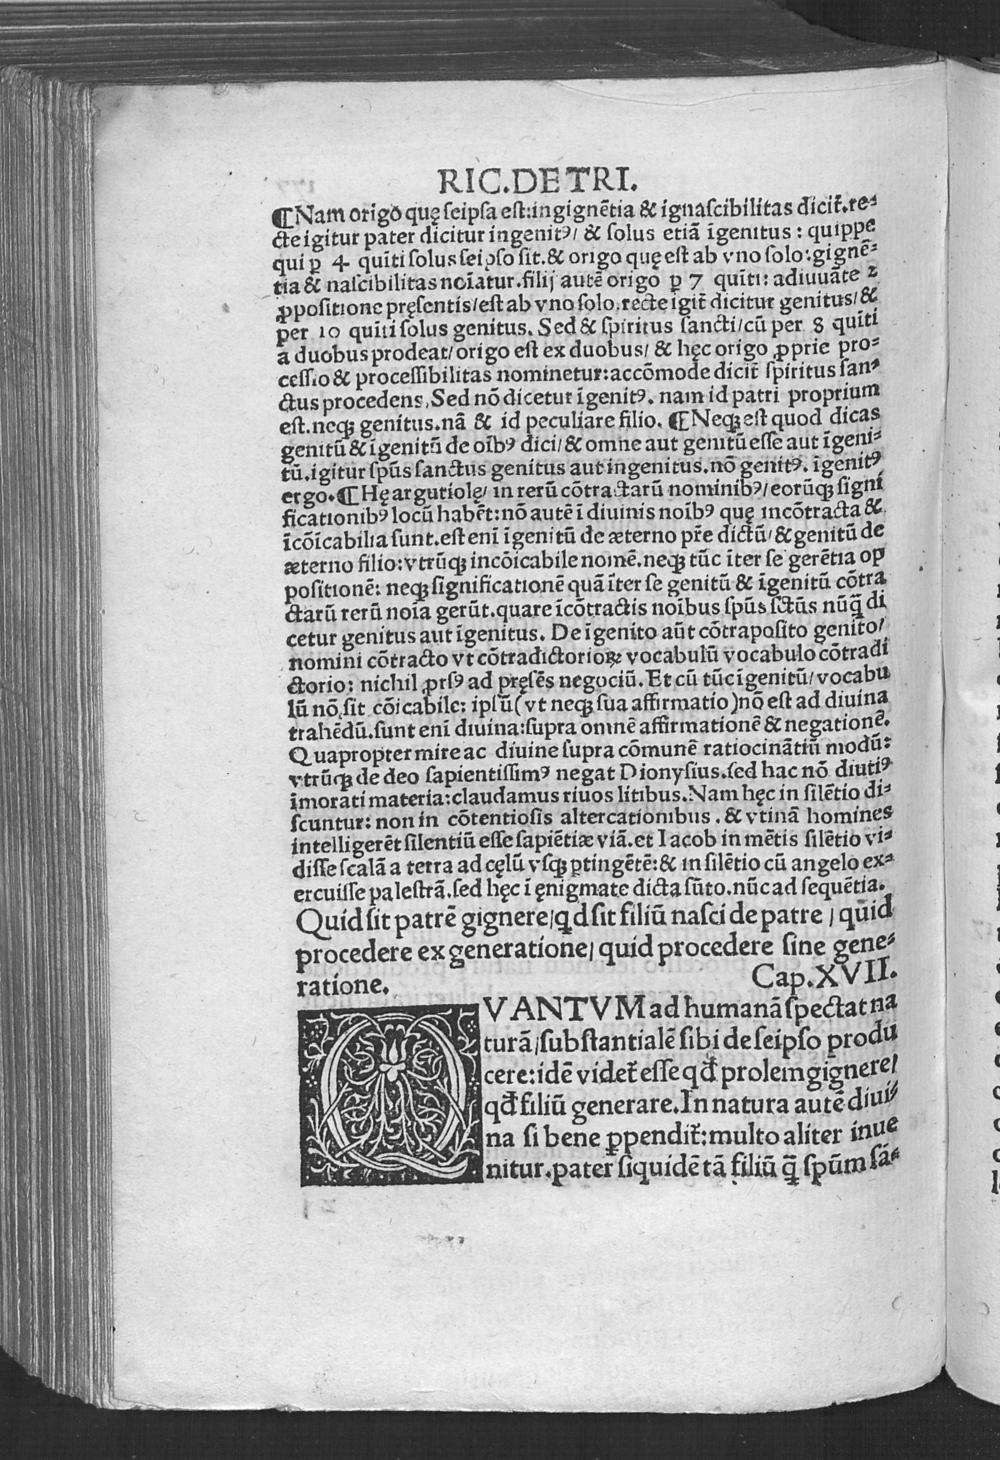 RIC.DE TRI.
¶Nam origo quę ſeipſa eſt:ingignētia & ignaſcibilitas dicit̃.re⸗
cte igitur pater dicitur ingenitꝰ/ & ſolus etiā īgenitus : quippe
qui ꝑ 4 quīti ſolus ſeipſo ſit.& origo quę eſt ab vno ſolo:gignē⸗
tia & naſcibilitas noīatur.filij autē origo ꝑ 7 quīti: adiuuāte ꝛ
ꝓpoſitione pręſentis/eſt ab vno ſolo.recte igit̃ dicitur genitus/&
per 10 quiti ſolus genitus. Sed & ſpiritus ſancti/cū per 8 quīti
a duobus prodeat/origo eſt ex duobus/ & hęc origo ꝓprie pro⸗
ceſſio & proceſſibilitas nominetur:accōmode dicit̃ ſpiritus ſan⸗
ctus procedens,Sed nō dicetur īgenitꝰ. nam id patri proprium
eſt.neqꝫ genitus.nā & id peculiare filio. ¶Neqꝫ eſt quod dicas
genitū & īgenitū de oībꝰ dici/& omne aut genitū eſſe aut īgeni⸗
tū.igitur ſpūs ſanctus genitus aut ingenitus.nō genitꝰ. īgenitꝰ
ergo.¶Hę argutiolę/ in rerū cōtractarū nominibꝰ/eorūqꝫ ſigni
ficationibꝰ locū habēt:nō autē ī diuinis noībꝰ quę incōtracta &
īcōicabilia ſunt.eſt enī īgenitū de æterno pr̃e dictū/& genitū de
æterno filio:vtrūqꝫ incōicabile nomē.neqꝫ tūc īter ſe gerētia op
poſitionē: neqꝫ ſignificationē quā īter ſe genitū & īgenitū cōtra
ctarū rerū noīa gerūt.quare īcōtractis noībus ſpūs ſctūs nūq̄ di
cetur genitus aut īgenitus. De īgenito aūt cōtrapoſito genito/
nomini cōtracto vt cōtradictorioꝝ vocabulū vocabulo cōtradi
ctorio: nichil ꝓrſꝰ ad pręſēs negociū. Et cū tūc īgenitū/vocabu
lū nō ſit cōicabile: ipſū( vt neqꝫ ſua affirmatio )nō eſt ad diuina
trahēdū.ſunt enī diuina:ſupra omnē affirmationē & negationē.
Quapropter mire ac diuine ſupra cōmunē ratiocinātiū modū:
vtrūqꝫ de deo ſapientiſſimꝰ negat Dionyſius.ſed hac nō diutiꝰ
īmorati materia:claudamus riuos litibus.Nam hęc in ſilētio di⸗
ſcuntur: non in cōtentioſis altercationibus . & vtinā homines
intelligerēt ſilentiū eſſe ſapiētiæ viā.et Iacob in mētis ſilētio vi⸗
diſſe ſcalā a terra ad cęlū vſqꝫ ꝑtingētē:& in ſilētio cū angelo ex⸗
ercuiſſe paleſtrā.ſed hęc ī ęnigmate dicta ſūto.nūc ad ſequētia.
Quid ſit patrē gignere/qd ſit filiū naſci de patre / quid
procedere ex generatione/ quid procedere ſine gene⸗
ratione. Cap.XVII.
QVANTVM ad humanā ſpectat na
turā/ſubſtantialē ſibi de ſeipſo produ
cere:idē videt̃ eſſe qđ prolem gignere/
qđ filiū generare.In natura autē diui⸗
na ſi bene ꝑpendit̃:multo aliter inue
nitur.pater ſiquidē tā filiū q̄ ſpūm ſā⸗